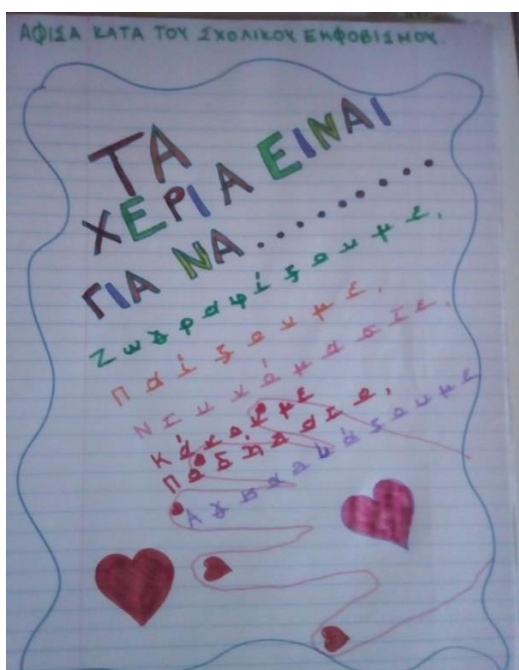 ΑΦΙΣΑ ΚΑΤΑ ΤΟΥ ΣΧΟΛΙΚΟΥ ΕΚΦΟΒΙΣΜΟΥ.
ΤΑ
ΧΕΡΙΑ ΕΙΝΑΙ
ΓΙΑ ΝΑ.........
Ζωγραφίζουμε.
Παίζουμε.
Κάνουμε
Αγκαλιάζουμε